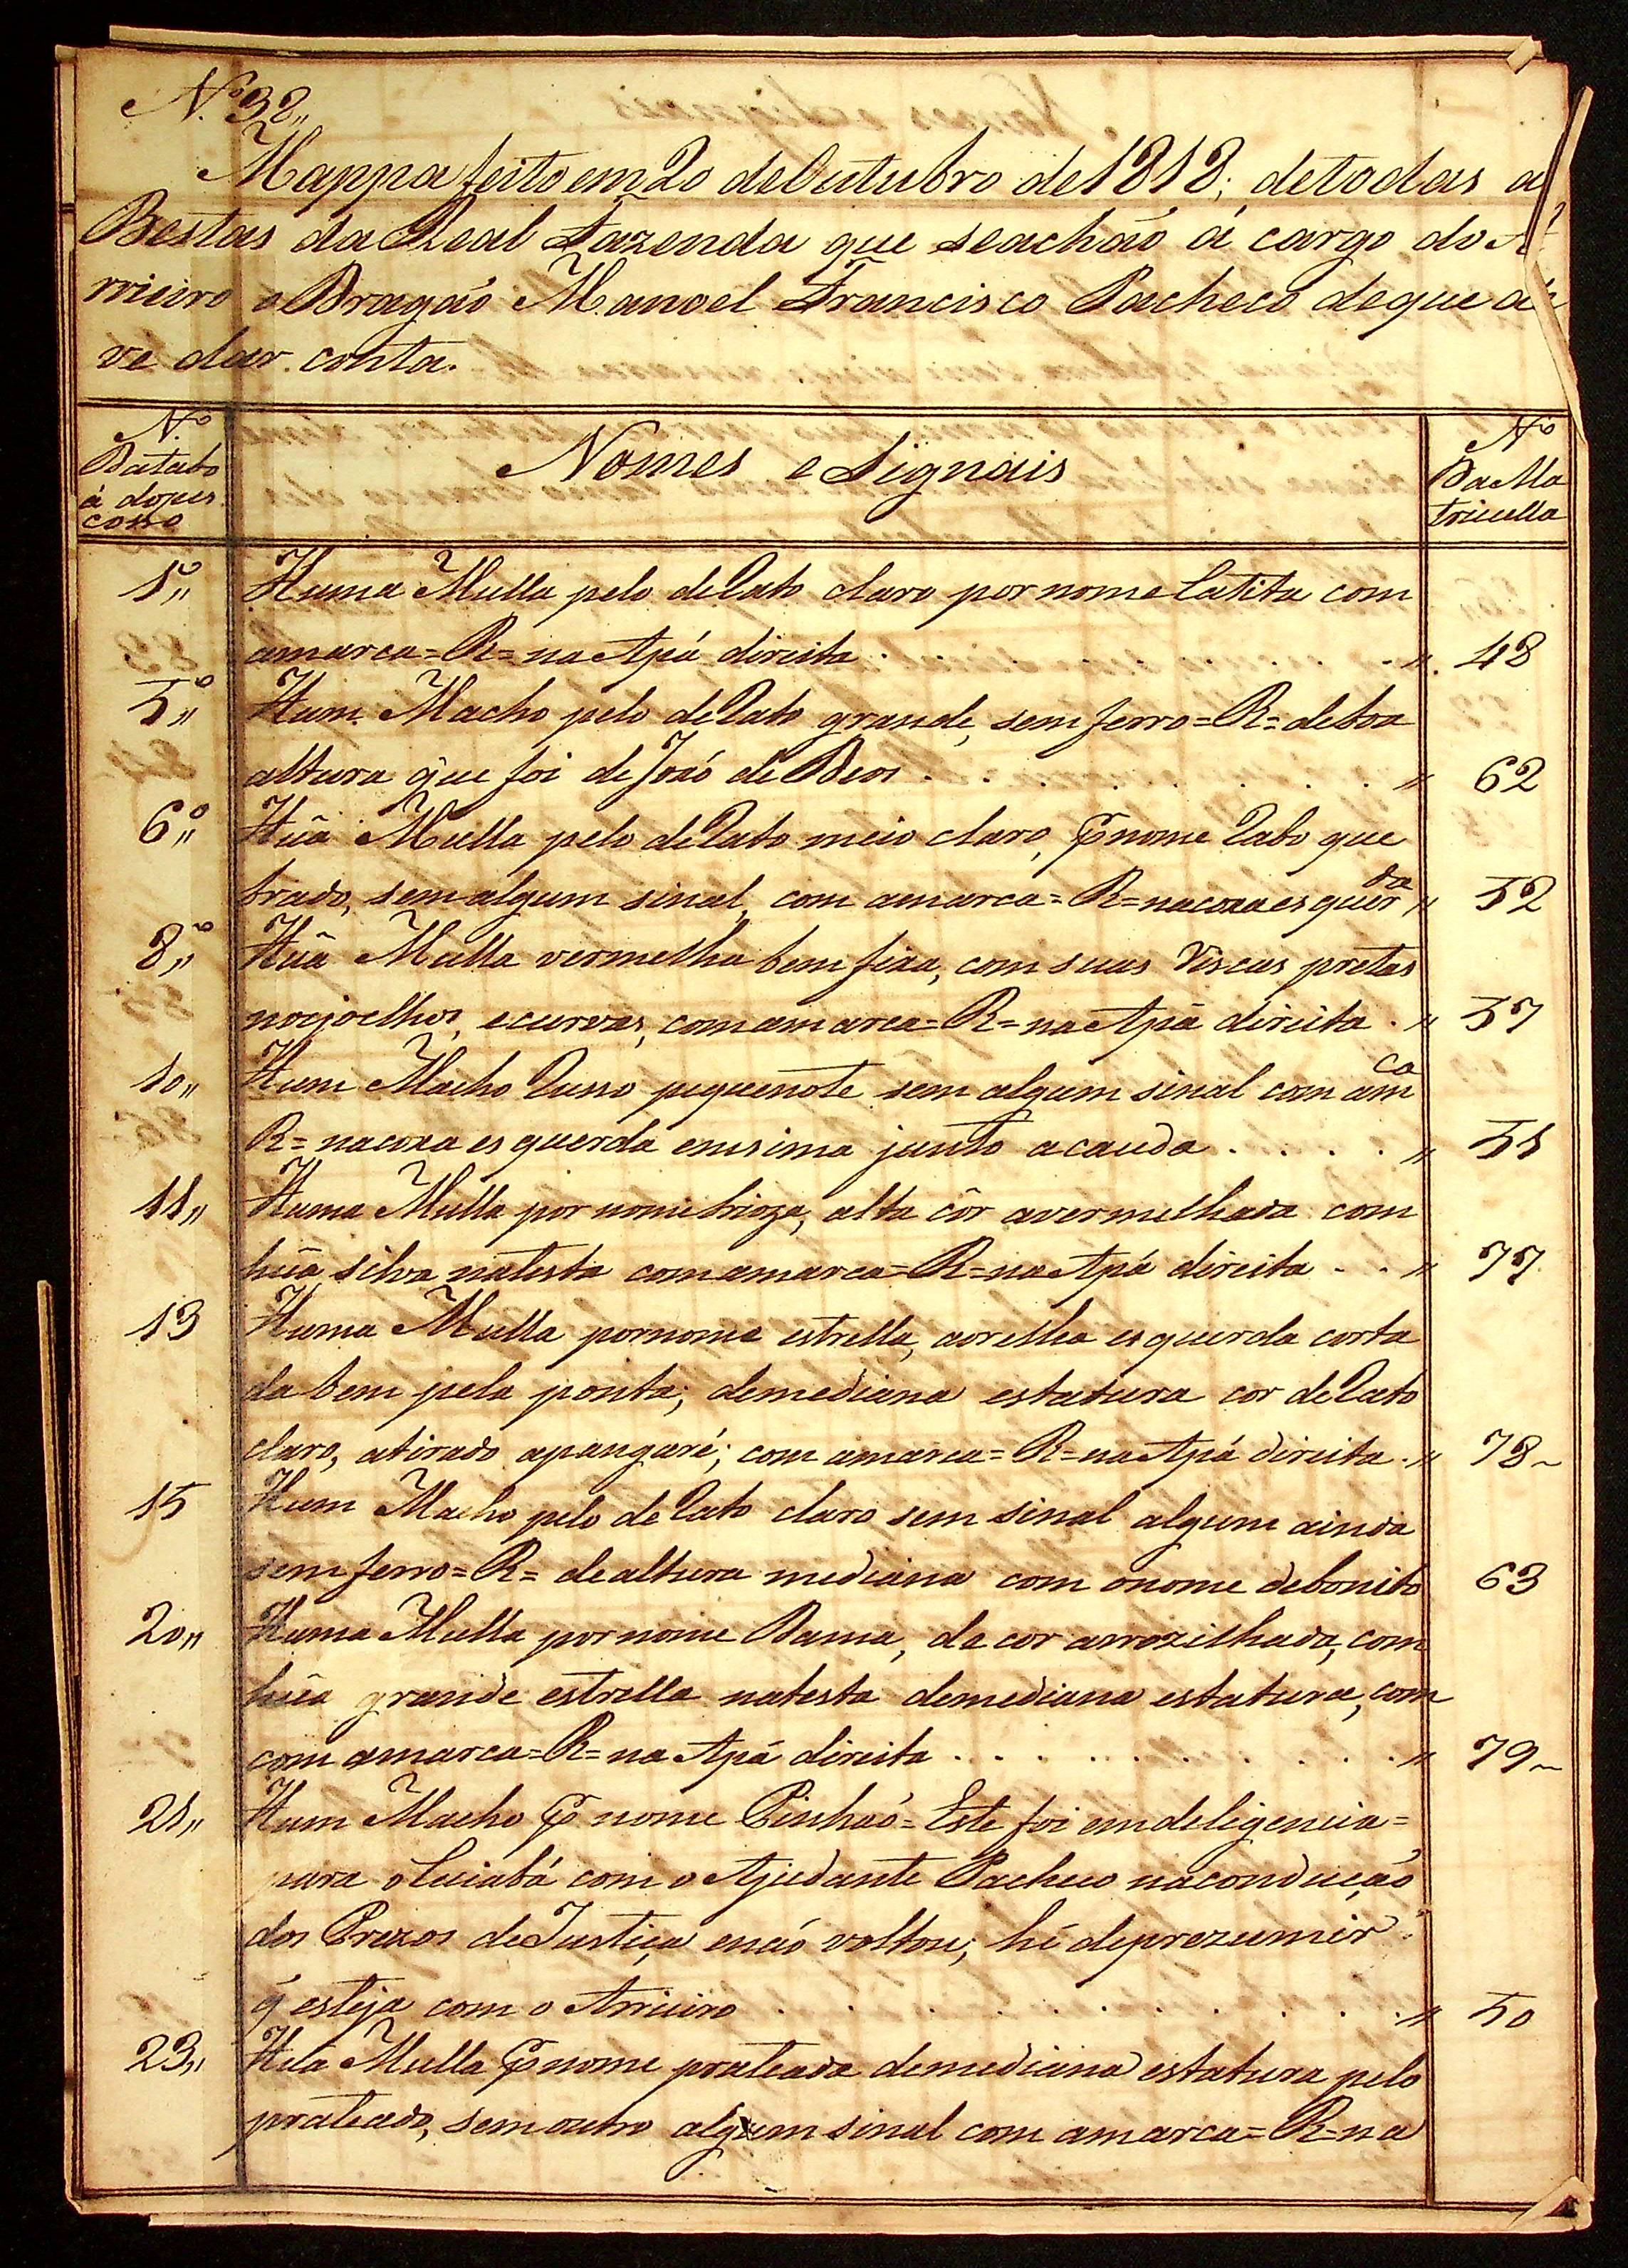 N.º 38,,
Mappa feito em 20 de Outubro de 1818; de todas a
Bestas da Real Fazenda que se achaõ á cargo do A
rrieiro o Dragaõ Manoel Francisco Pacheco de que de
ve dar conta.
N.º
Da tabo
á do pes
coso
Nomes e Signais
Nº
Da Ma
tricula
1º,, Huma Mulla pelo de Rato claro por nome Catita com
a marca=R=na Apá direita . . . . . . . ,, 48
5º,, Hum Macho pelo de Rato grande, sem ferro=R=de boa
altura que foi de Joaõ de Deos . . . . . . ,, 62
6º,, Hũa Mulla pelo de Rato meio claro, P nome Rabo que
brado, sem algum sinal, com a marca=R=na coxa esquerda ,, 52
8º,, Hũa Mulla vermelha bem fixa, com suas Riscas pretas
nos joelhos, e curvas, com a marca=R=na Apá direita . ,, 57
10,, Hum Macho Russo piquenote sem algum sinal com a mca
R=na coxa esquerda em sima junto a cauda . . . . ,, 51
11,, Huma Mulla por nome brioza, alta côr avermelhada com
hũa silva na testa com a marca=R=na Apá direita . . ,, 77
13 Huma Mulla por nome estrella, a orelha esquerda corta
da bem pela ponta, de mediana estatura cor de Rato
claro, atirado a pangaré; com a marca=R=na Apá direita . ,, 78~
15 Hum Macho pelo de Rato claro sem sinal algum ainda
sem ferro=R= de altura mediana com o nome de bonito 63
20,, Huma Mulla por nome Dama, de cor arrozilhada, com
hũa grande estrella na testa de mediana estatura, com
com a marca=R=na Apá direita . . . . . . . . ,, 79~
21,, Hum Macho P nome Pinhaõ=Este foi em deligencia=
para o Cuiabá com o Ajudante Pacheco na conduçaõ
dos Prezos de Justiça e naõ voltou; hé de prezumir
q̃ esteja com o Arrieiro . . . . . . . . . ,, 50
23,, Hũa Mulla P nome prateada de mediana estatura pelo
prateado, sem outro algum sinal com a marca=R=na